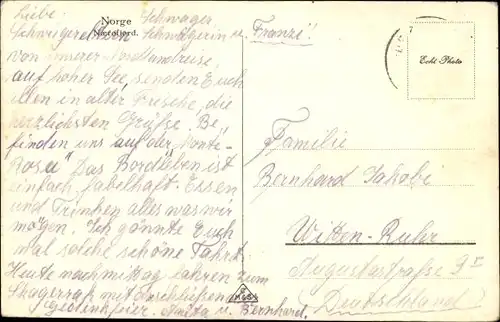 Norge
Nordfjord.
Liebe Schwager,
Schwiegereltern Schwägerin u. Franze!
von unserer Nordlandreise,
auf hoher See, senden Euch
allen in alter Frische, die
herzlichsten Grüße. Be
finden uns auf der Monte-
Rosa" Das Bordleben ist
einfach fabelhaft. Essen
und Trinken alles was wir
mögen. Ich gönnte Euch
mal solche schöne Fahrt.
Heute nachmittag fahren zum
Skagerrak mit Anschließen
Gedenkfeier. Anita u. Bernhard.
Echt Photo
Familie
Bernhard Jakobi
Witten-Ruhr
Augustastraße 9
(Deutschland)